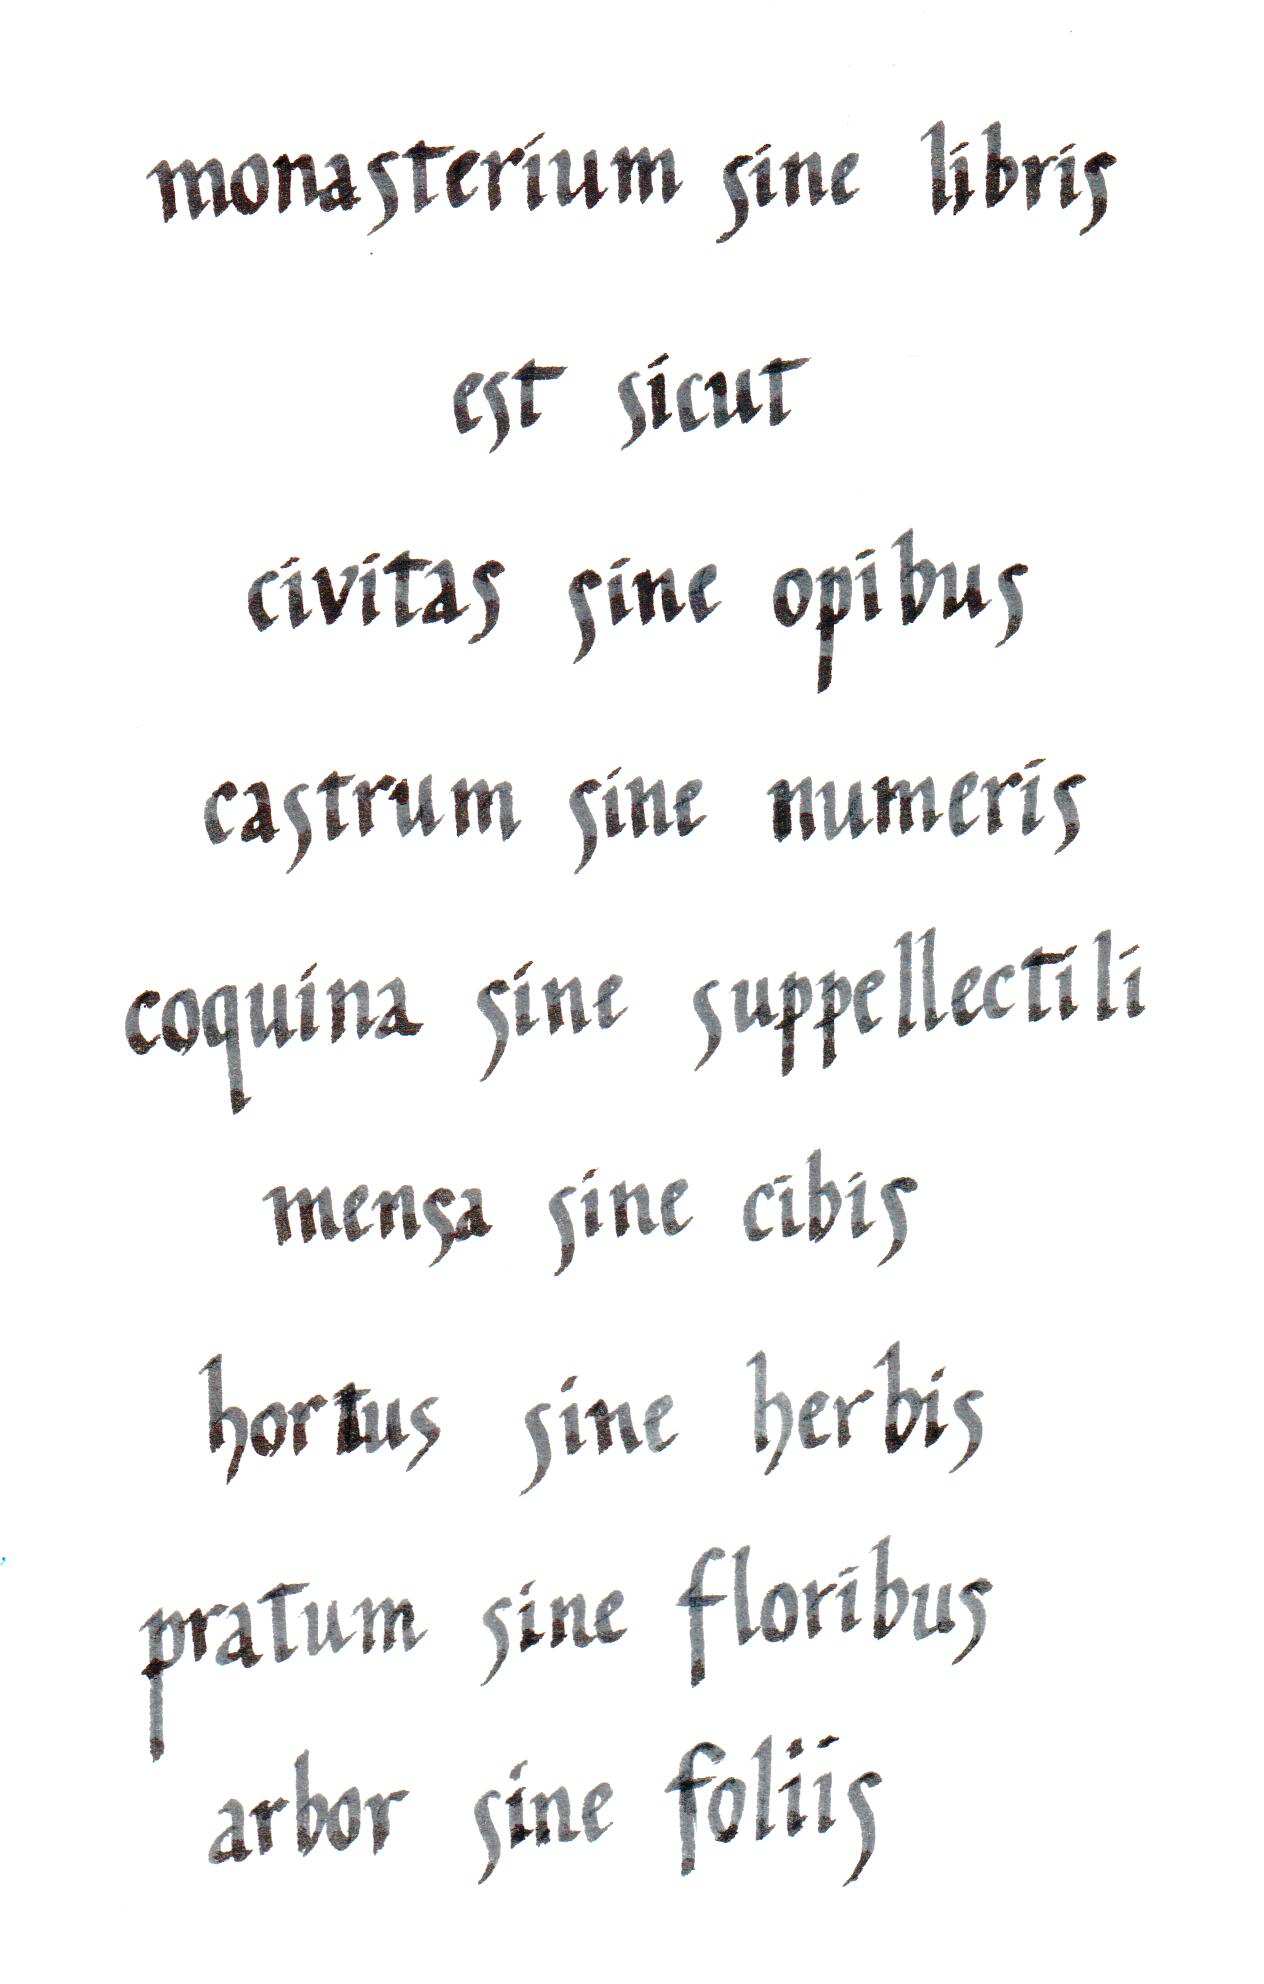 monasterium sine libris
est sicut
civitas sine opibus
castrum sine numeris
coquina sine suppellectili
mensa sine cibis
hortus sine herbis
pratum sine floribus
arbor sine foliis